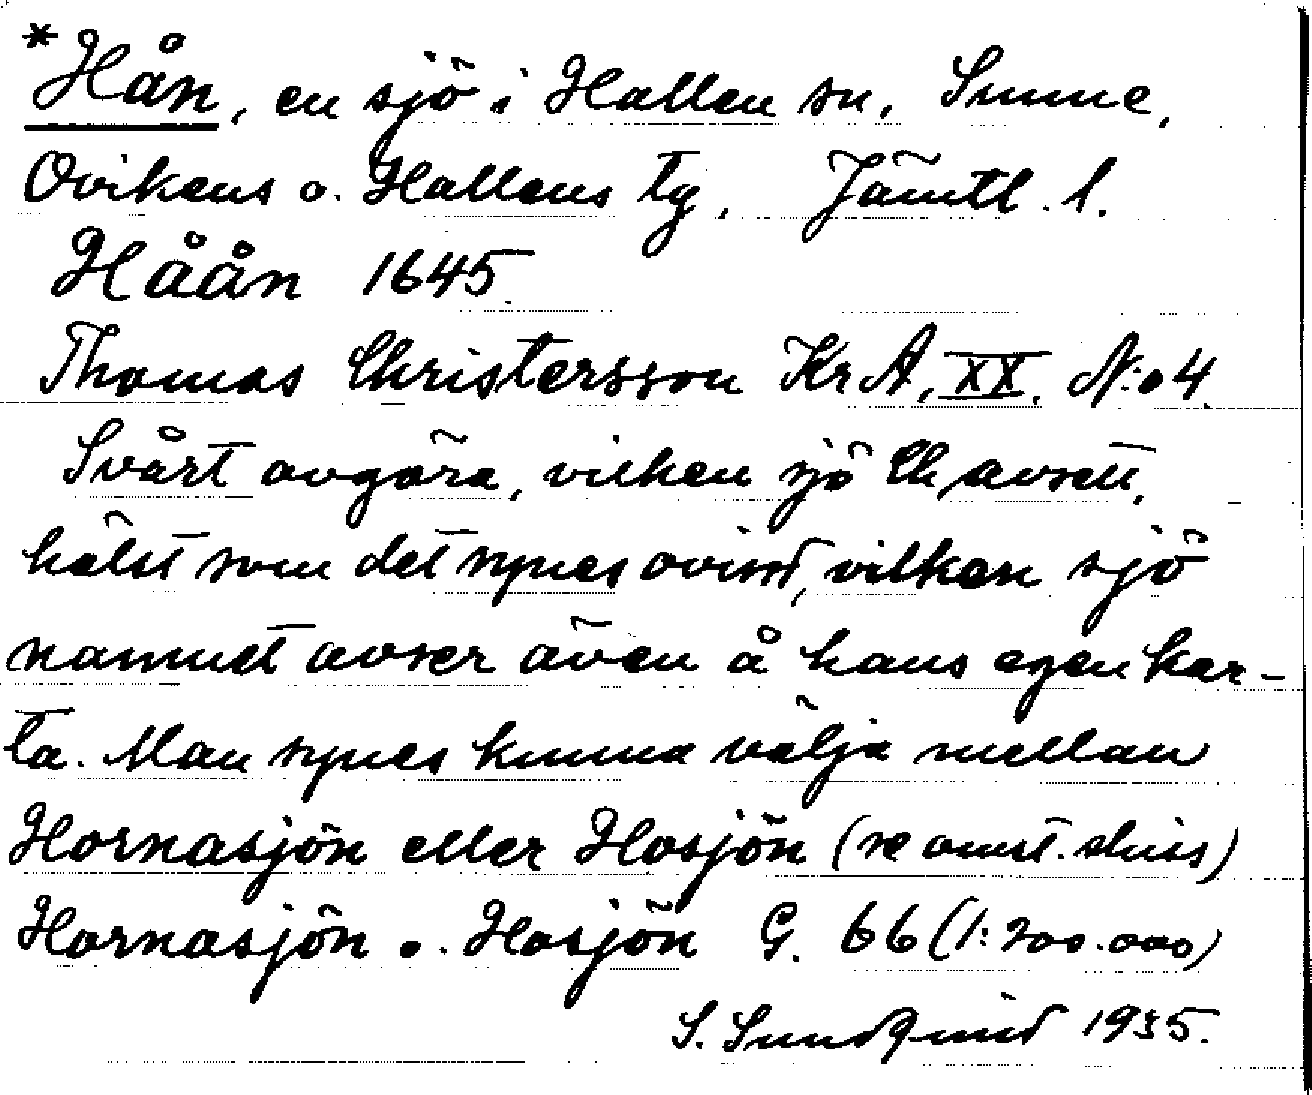 *Hån, en sjö i Hallen sn, Sunne,
Ovikens o. Hallens tg, Jämtl. l.
Håån 1645
Thomas Christersson KrA, XX. N:o 4.
Svårt avgöra, vilken sjö Ch avsett,
hälst som det synes ovisst, vilken sjö
namnet avser även å hans egen kar-
ta. Man synes kunna välja mellan
Hornasjön eller Hosjön (se omst. skiss)
Hornasjön o. Hosjön G. 66 (1:200.000)
S. Sundqvist 1935.